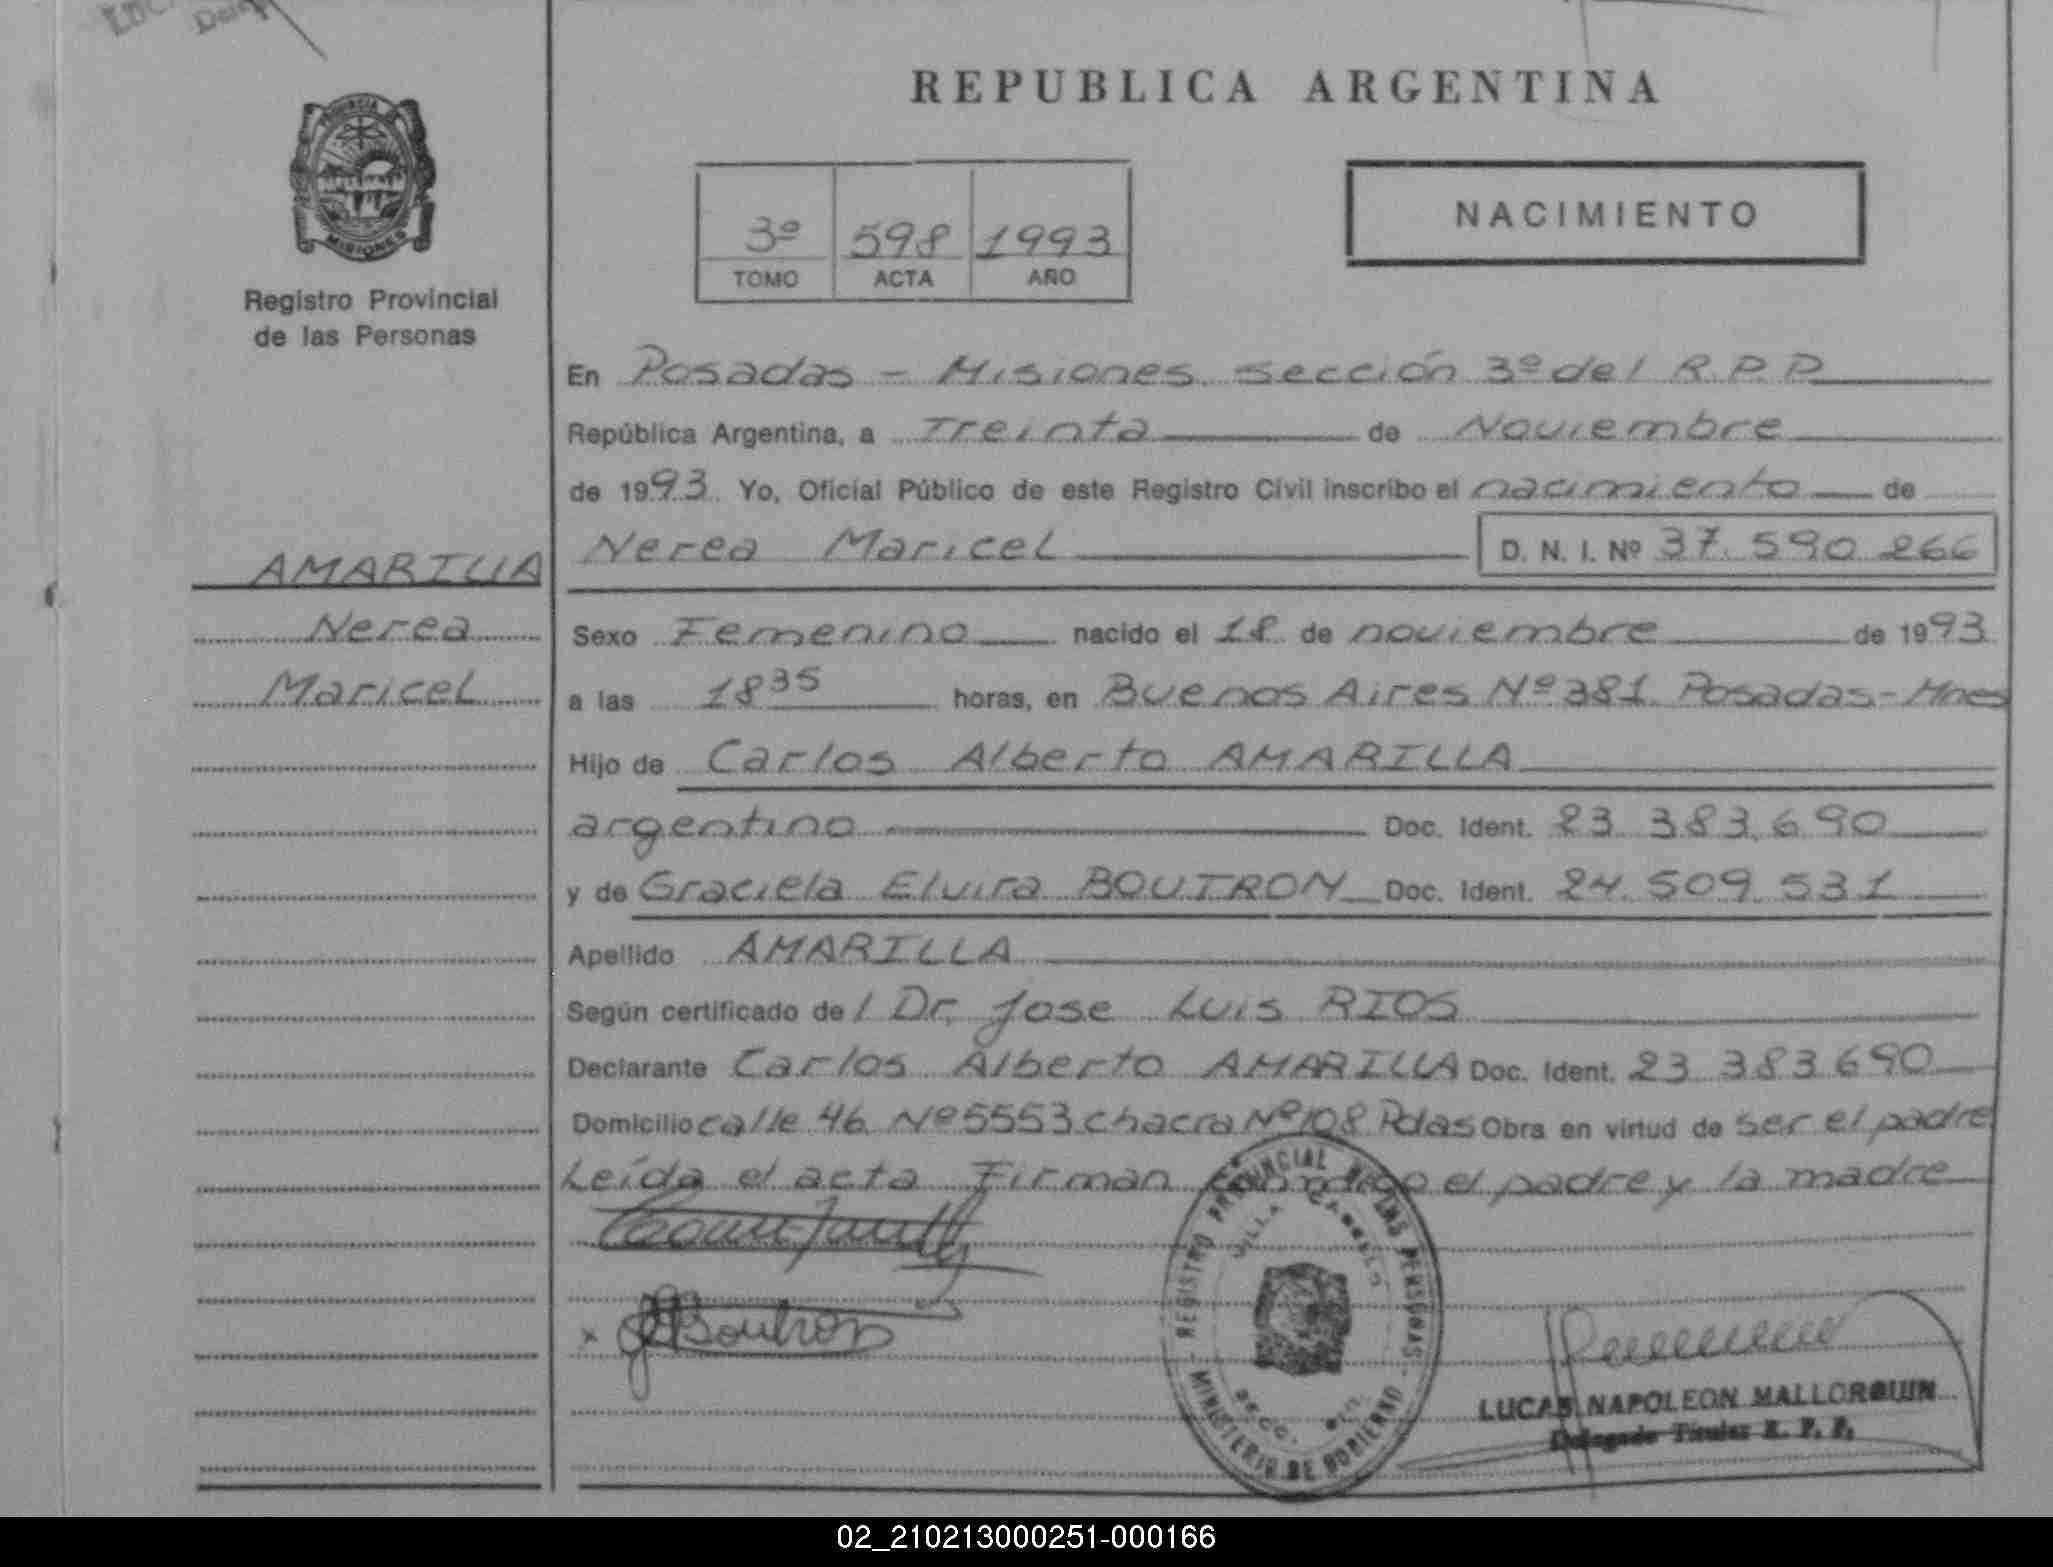 REPUBLICA ARGENTINA
PROVINCIA DE
MISIONES
Registro Provincial
de las Personas
3º 598 1993
TOMO ACTA AÑO
NACIMIENTO
En Posadas - Misiones sección 3º del R.P.P
República Argentina, a Treinta de Noviembre
de 1993 Yo, Oficial Público de este Registro Civil inscribo el nacimiento de
Nerea Maricel D. N. I. Nº 37.590.266
AMARILLA
Nerea
Maricel
Sexo Femenino nacido el 18 de noviembre de 1993
a las 18 35 horas, en Buenos Aires Nº 381 Posadas-Mnes
Hijo de Carlos Alberto AMARILLA
argentino Doc. Ident. 23.383.690
y de Graciela Elvira BOUTRON Doc. Ident. 24.509.531
Apellido AMARILLA
Según certificado de l Dr. Jose Luis RIOS
Declarante Carlos Alberto AMARILLA Doc. Ident. 23.383.690
Domicilio calle 46 Nº 5553 chacra Nº 108 Pdas Obra en virtud de ser el padre
Leída el acta Firman conmigo el padre y la madre
Boutron
REGISTRO PROVINCIAL DE LAS PERSONAS
VILLA CABELLO
SECC.
MINISTERIO DE GOBIERNO
LUCAS NAPOLEON MALLORQUIN
Delegado Titular R. P. P.
02_210213000251-000166